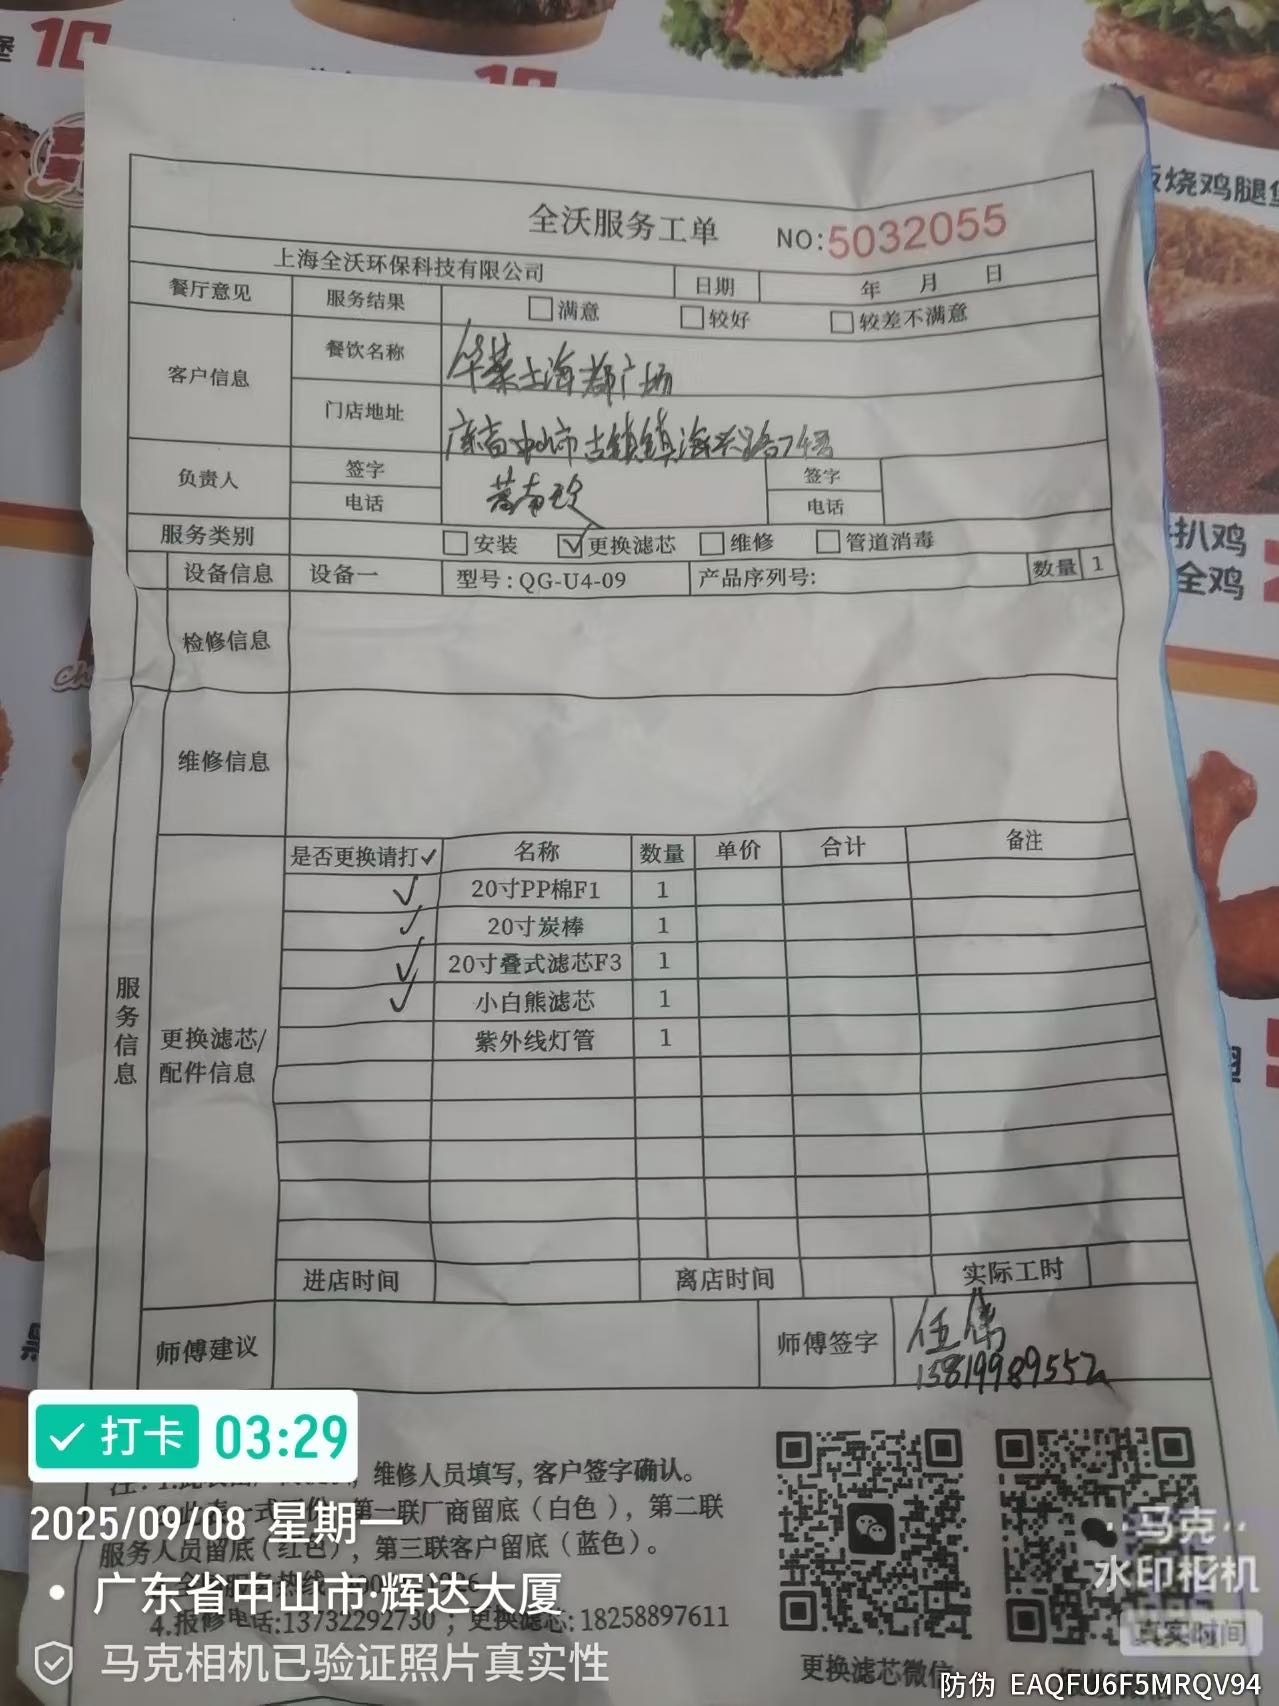 10
10
板烧鸡腿堡
全沃服务工单 NO:5032055
上海全沃环保科技有限公司 日期 年 月 日
餐厅意见 服务结果 满意 较好 较差不满意
客户信息 餐饮名称 华莱士海都广场
门店地址 广东省中山市古镇镇海兴路74号
负责人 签字 签字
电话 电话
服务类别 安装 ✓更换滤芯 维修 管道消毒
设备信息 设备一 型号:QG-U4-09 产品序列号: 数量 1
扒鸡
全鸡
检修信息
维修信息
是否更换请打✓ 名称 数量 单价 合计 备注
✓ 20寸PP棉F1 1
✓ 20寸炭棒 1
✓ 20寸叠式滤芯F3 1
✓ 小白熊滤芯 1
紫外线灯管 1
服务信息
更换滤芯/
配件信息
进店时间 离店时间 实际工时
师傅建议 师傅签字 伍伟
15819989552
✓打卡 03:29
维修人员填写, 客户签字确认。
第一联厂商留底(白色), 第二联
2025/09/08 星期一
服务人员留底(红色), 第三联客户留底(蓝色)。
广东省中山市·辉达大厦
4.报修电话:13732292730, 更换滤芯:18258897611
马克相机已验证照片真实性
更换滤芯微信
马克
水印相机
真实时间
防伪 EAQFU6F5MRQV94